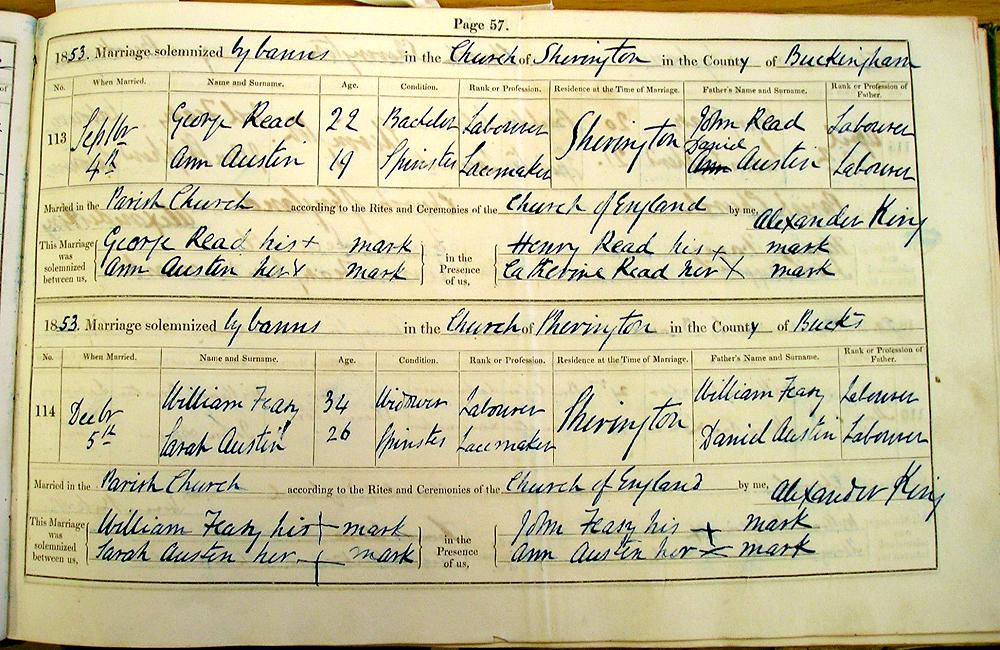 Page 57.
1853. Marriage solemnized by banns in the Church of Sherington in the County of Buckingham
No. When Married. Name and Surname. Age. Condition. Rank or Profession. Residence at the Time of Marriage. Father's Name and Surname. Rank or Profession of Father.
113 Septbr 4th George Read 22 Bachelor Labourer Sherington John Read Labourer
Ann Austin 19 Spinster Lacemaker Daniel Ann Austin Labourer
Married in the Parish Church according to the Rites and Ceremonies of the Church of England by me, Alexander King
This Marriage was solemnized between us, George Read his + mark in the Presence of us, Henry Read his + mark
Ann Austin her X mark Catherine Read her X mark
1853. Marriage solemnized by banns in the Church of Sherington in the County of Bucks
No. When Married. Name and Surname. Age. Condition. Rank or Profession. Residence at the Time of Marriage. Father's Name and Surname. Rank or Profession of Father.
114 Decbr 5th William Feasy 34 Widower Labourer Sherington William Feasy Labourer
Sarah Austin 26 Spinster Lacemaker Daniel Austin Labourer
Married in the Parish Church according to the Rites and Ceremonies of the Church of England by me, Alexander King
This Marriage was solemnized between us, William Feasy his + mark in the Presence of us, John Feasy his + mark
Sarah Austen her + mark Ann Austen her X mark